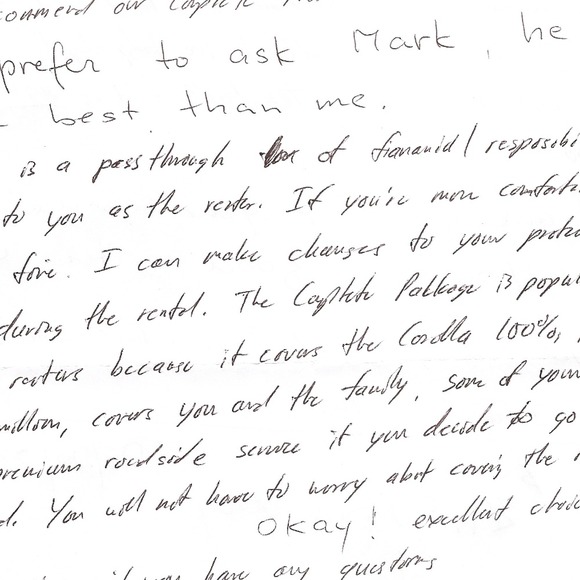 recommend our Complete
prefer to ask Mark, he
best than me.
is a pass through of financial/ resposibi
to you as the renter. If you're more comforta
fine. I can make changes to your protec
during the rental. The Complete Package is popul
renters because it covers the Corolla 100%,
million, covers you and the family, some of your
premium roadside service if you decide to go
d. You will not have to worry about covering the
Okay! excellent choic
if you have any questions